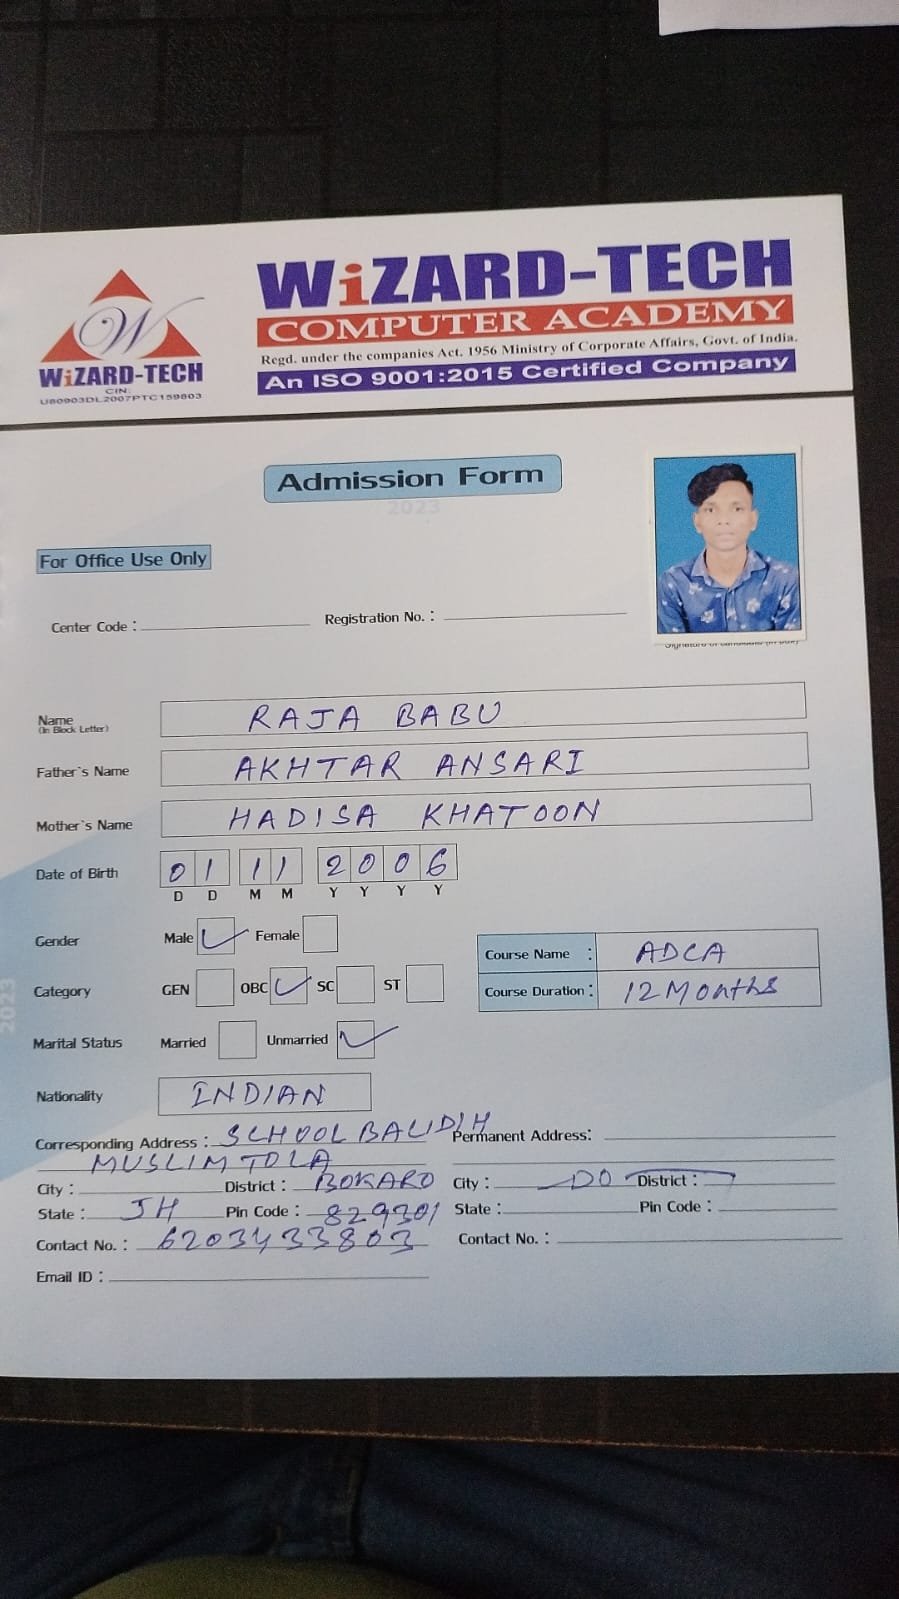 W
WiZARD-TECH
CIN:
U80903DL2007PTC159803
WiZARD-TECH
COMPUTER ACADEMY
Regd. under the companies Act. 1956 Ministry of Corporate Affairs, Govt. of India.
An ISO 9001:2015 Certified Company
Admission Form
2023
For Office Use Only
Center Code : Registration No. :
Signature of candidate (in box)
Name RAJA BABU
(In Block Letter)
Father`s Name AKHTAR ANSARI
Mother`s Name HADISA KHATOON
Date of Birth 01 11 2006
D D M M Y Y Y Y
Gender Male Female
Course Name : ADCA
Category GEN OBC SC ST
Course Duration : 12 Months
Marital Status Married Unmarried
Nationality INDIAN
2023
Corresponding Address : SCHOOL BALIDIH
MUSLIM TOLA
City : District : BOKARO
State : JH Pin Code : 829301
Contact No. : 6203433803
Email ID :
Permanent Address:
City : DO District :
State : Pin Code :
Contact No. :